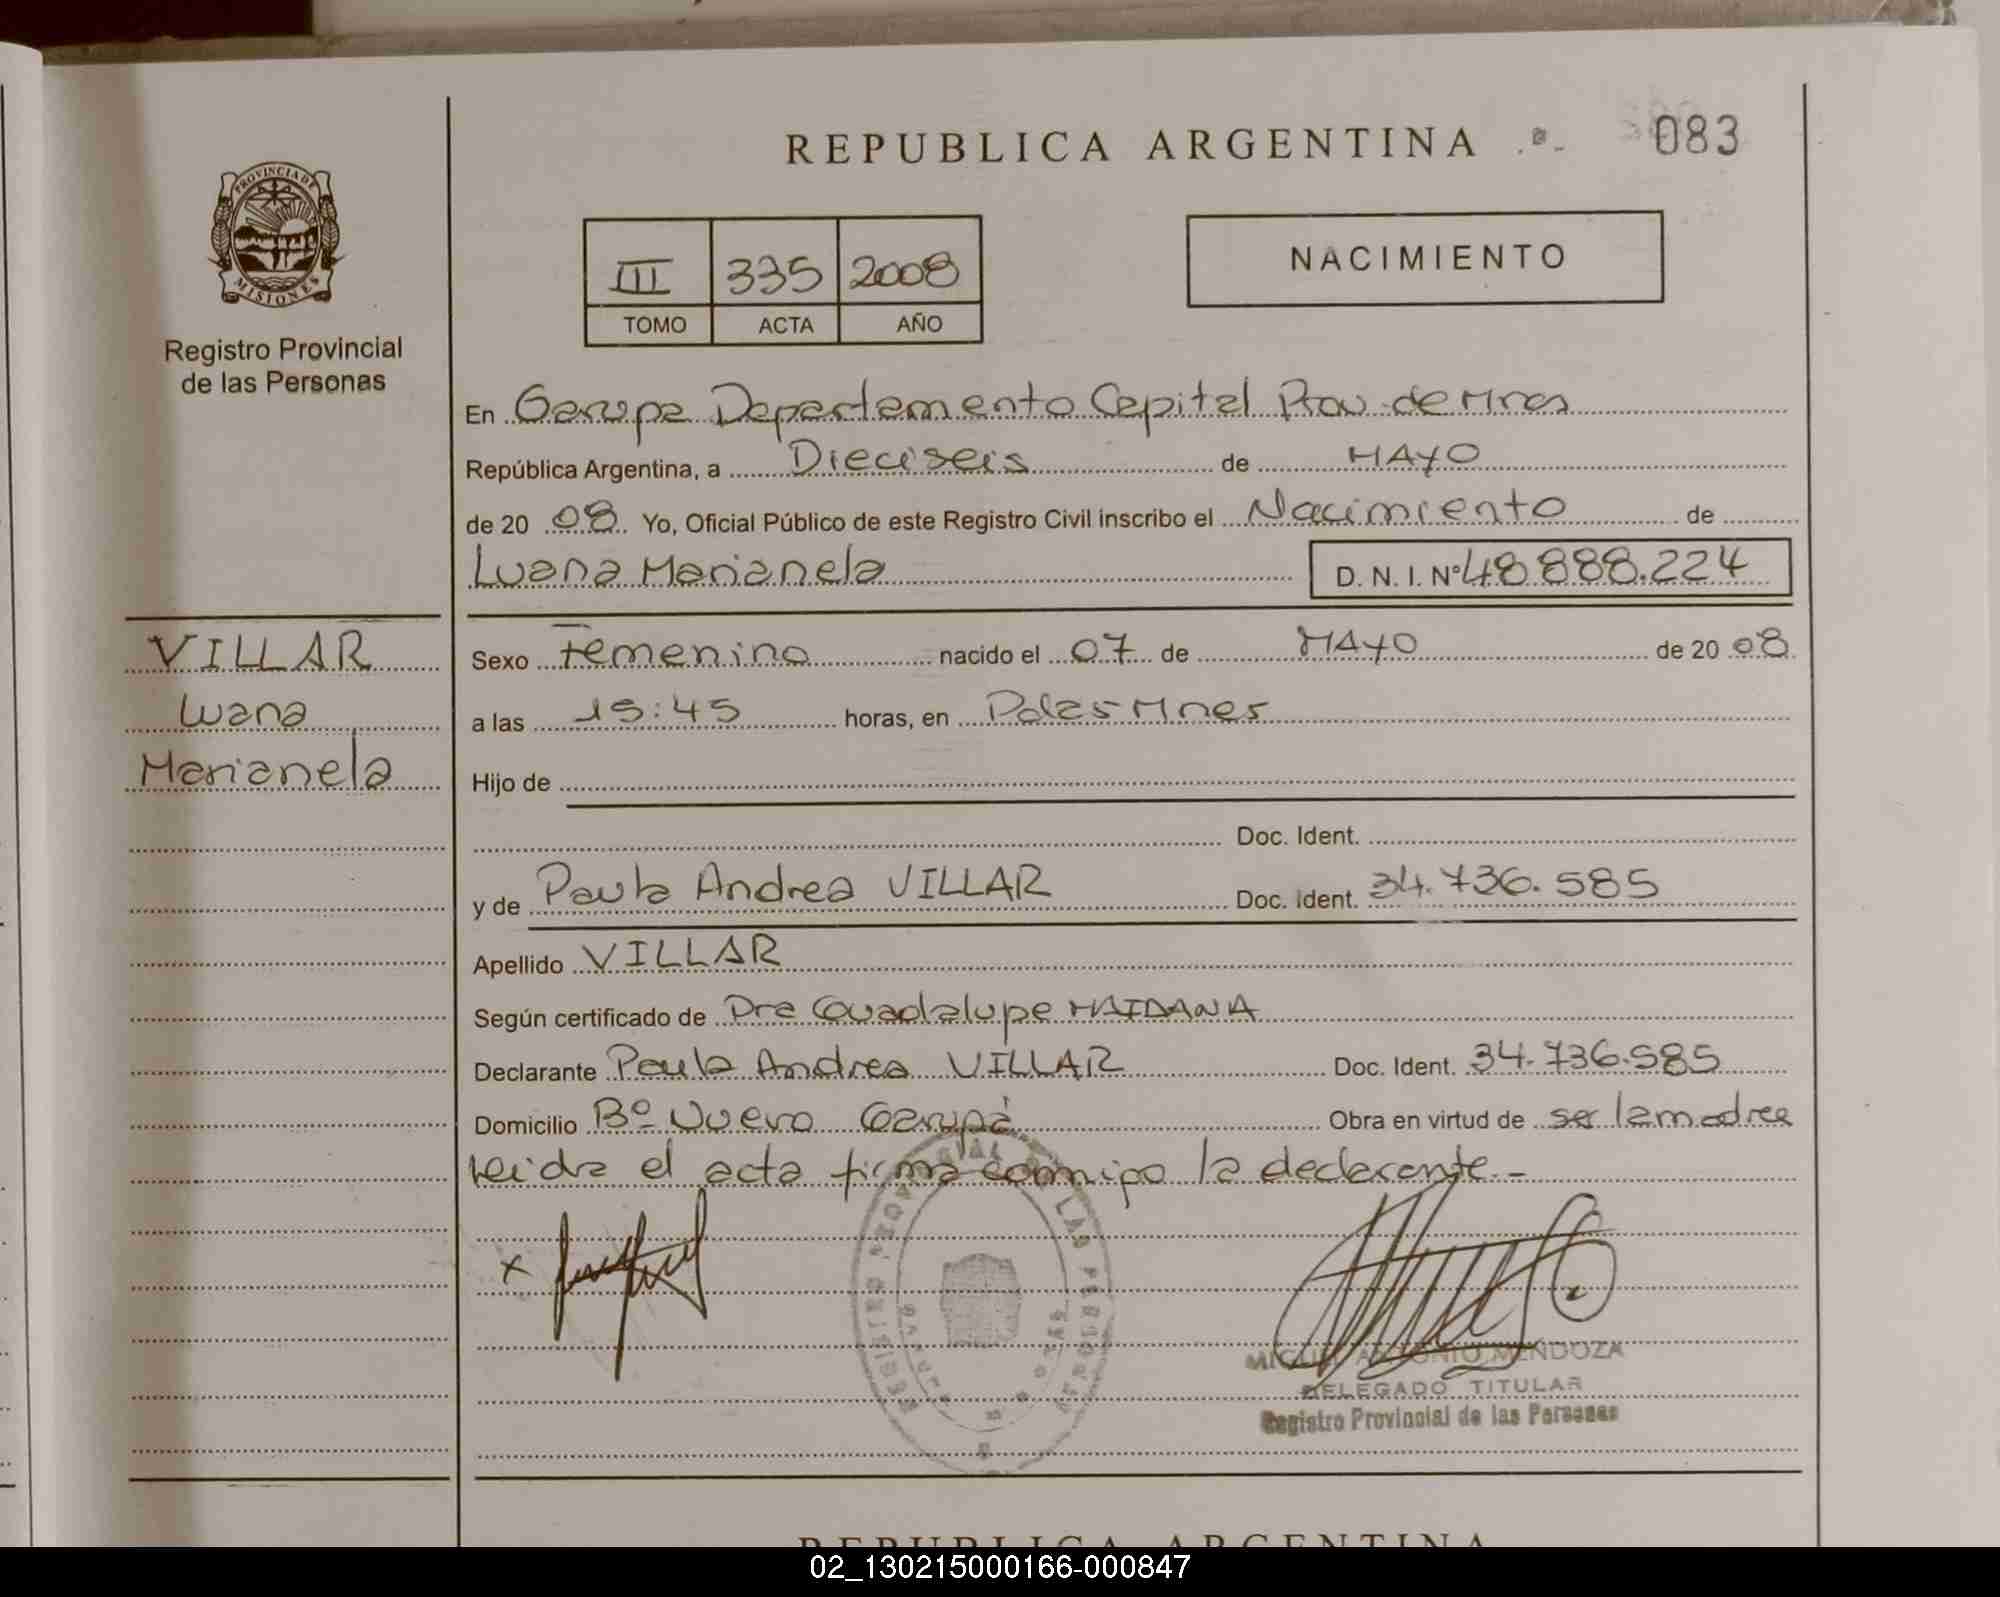 REPUBLICA ARGENTINA
083
PROVINCIA DE
MISIONES
Registro Provincial
de las Personas
III 335 2008
TOMO ACTA AÑO
NACIMIENTO
En Garupa Departamento Capital Prov. de Mnes
República Argentina, a Dieciseis de MAYO
de 20 08 Yo, Oficial Público de este Registro Civil inscribo el Nacimiento de
Luana Marianela D. N. I. Nº 48.888.224
VILLAR
Luana
Marianela
Sexo Femenino nacido el 07 de MAYO de 20 08
a las 15:45 horas, en Pdas Mnes
Hijo de
Doc. Ident.
y de Paula Andrea VILLAR Doc. Ident. 34.736.585
Apellido VILLAR
Según certificado de Dra Guadalupe MAIDANA
Declarante Paula Andrea VILLAR Doc. Ident. 34.736.585
Domicilio Bº Nuevo Garupá Obra en virtud de ser la madre
Leida el acta firma conmigo la declarante.-
x
MIGUEL ANTONIO MENDOZA
DELEGADO TITULAR
Registro Provincial de las Personas
REPUBLICA ARGENTINA
02_130215000166-000847